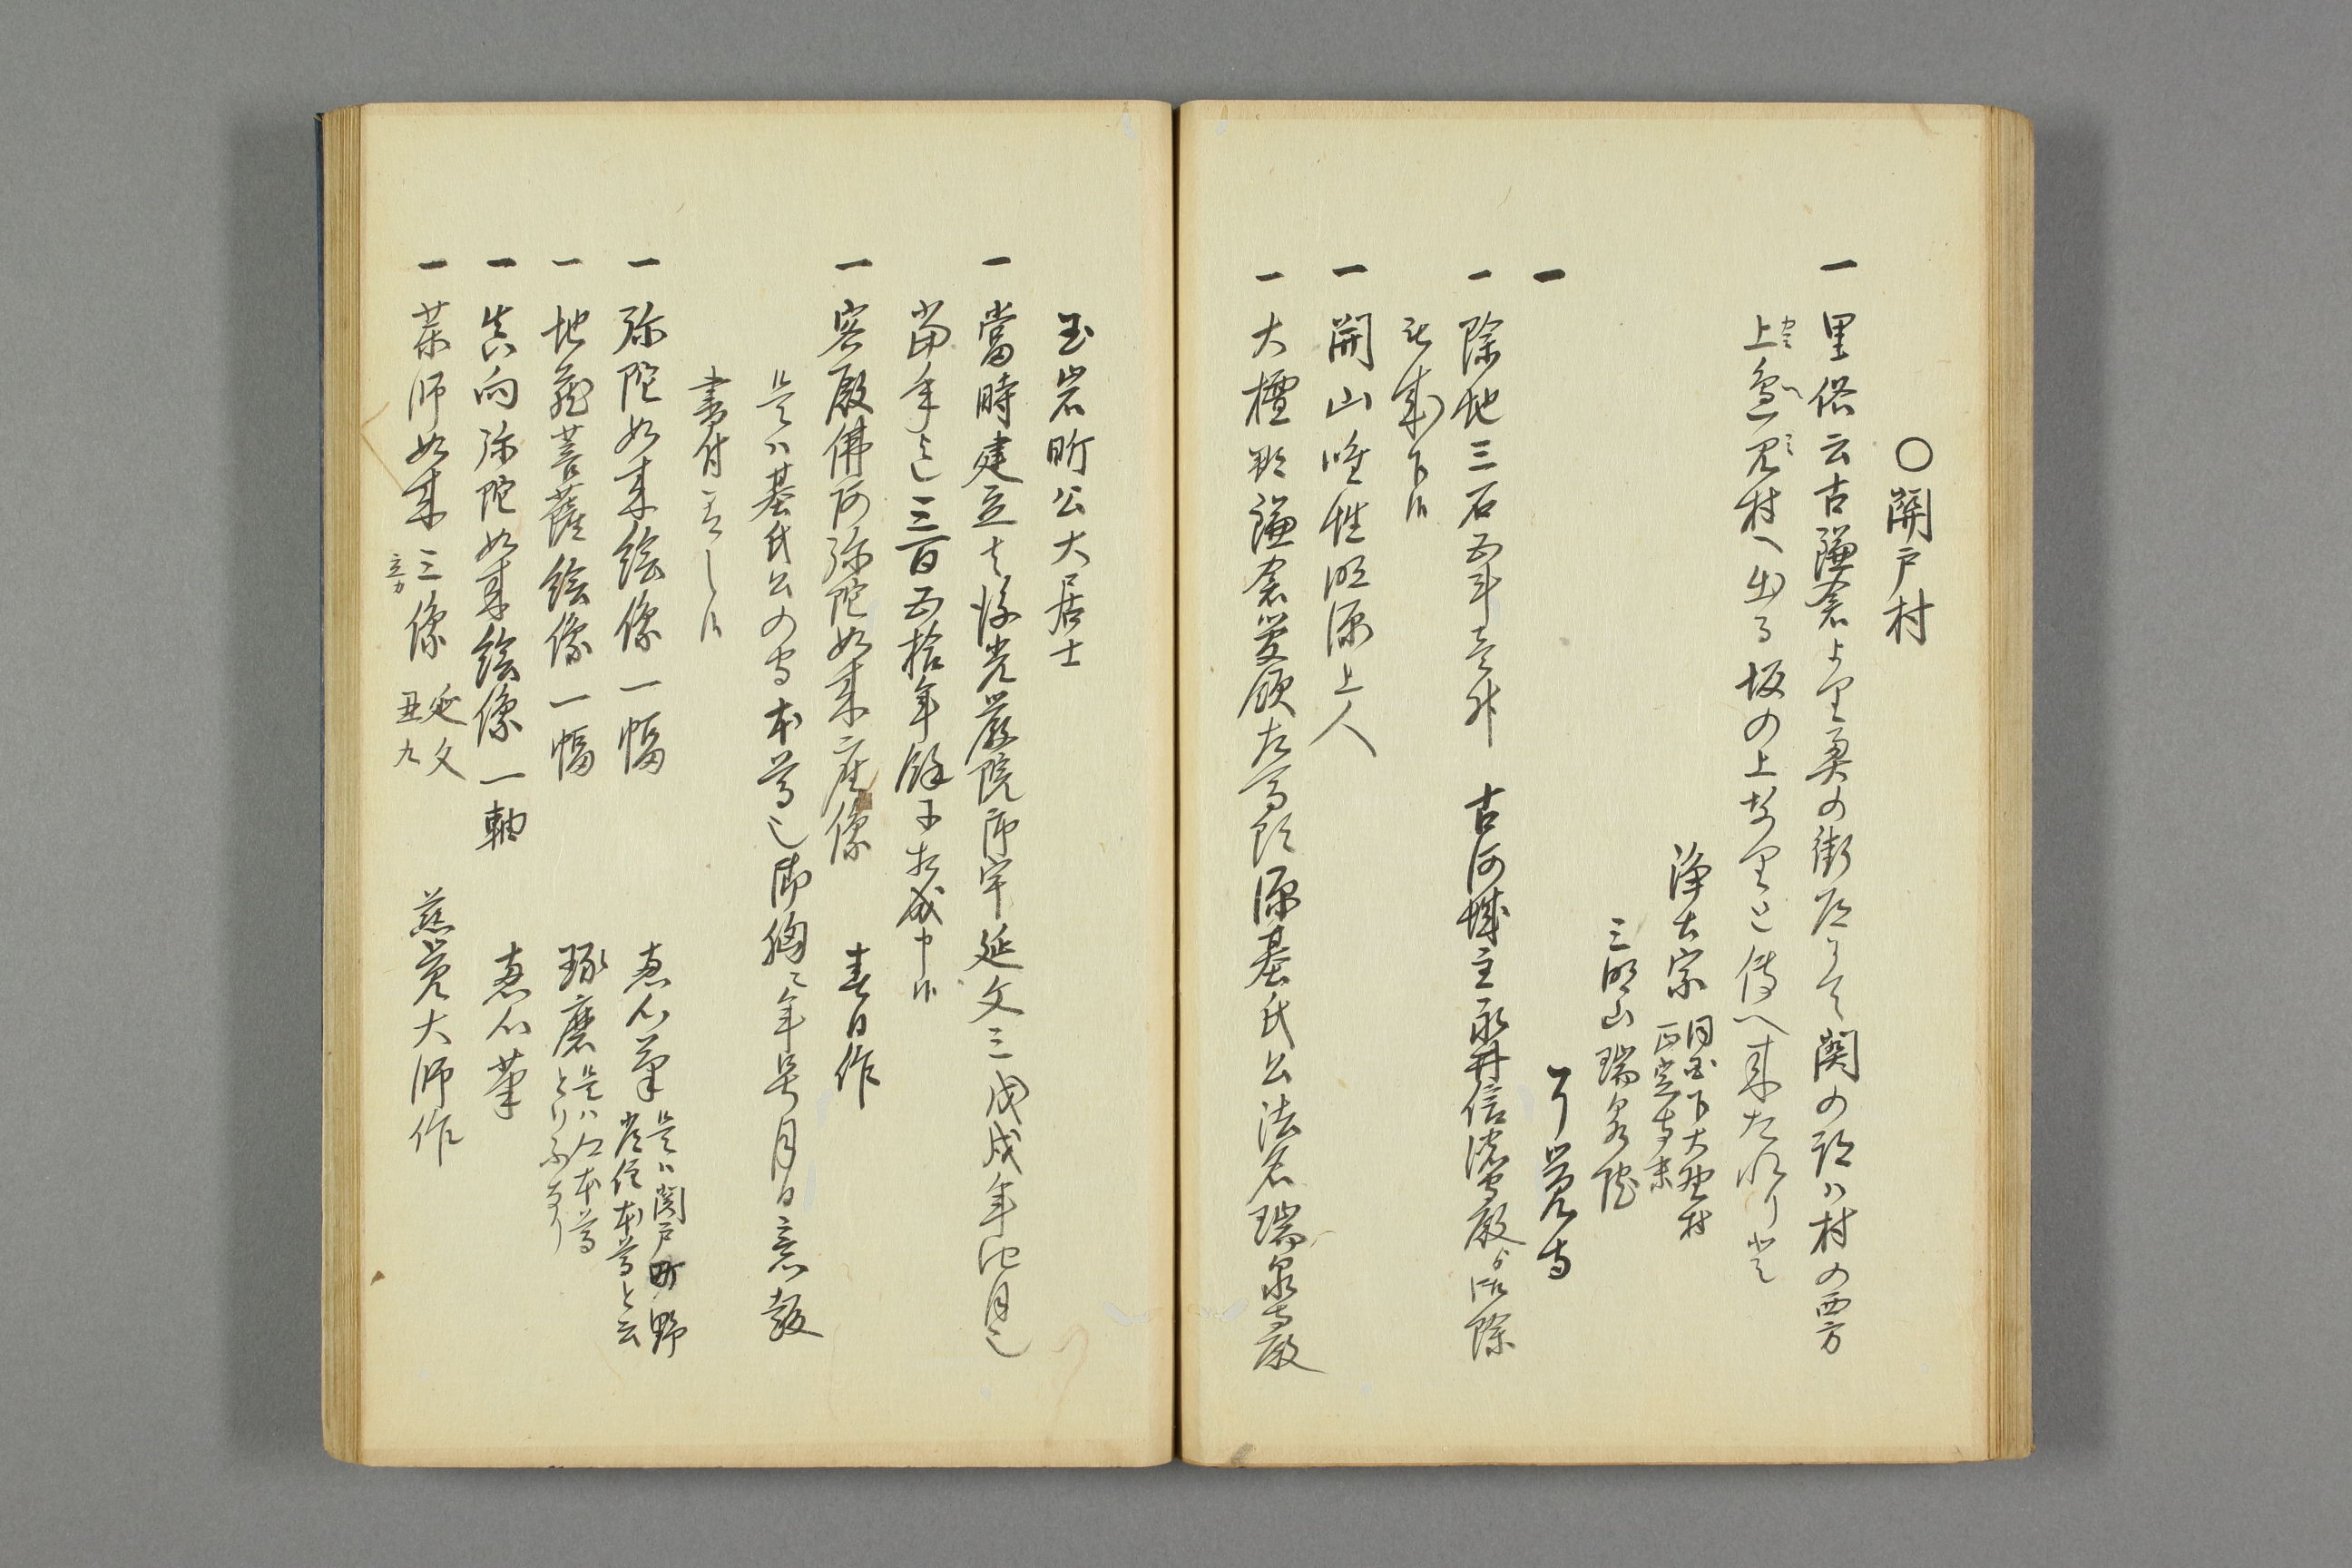 〇関戸村
一 里俗云古鎌倉より奥の街道にて関の跡ハ村の西方
上邊見村へ出る坂の上なりと傳へ来たれり
カミ ヘ ミ
浄土宗 同国下大野村
三明山瑞泉院
一 了覚寺
一 除地三石五斗壱升 古河城主永井信濃守殿より御除
被成下候
一 開山唯性明源上人
一 大檀那鎌倉管領左馬頭源基氏公法名瑞泉寺殿
玉岩昕公大居士
一 當時建立ハ浄光厳院御宇延文三戊戌年
當年迄三百五拾年餘ニ相成申候
一 客殿佛阿弥陀如来座像 春日作
是ハ基氏公の守本尊也御胸ニ年号月日意趣
書付有之候
一 弥陀如来絵像一幅 恵心筆 是ハ関戸町野
本尊と云
一 地蔵菩薩絵像一幅 琢磨 是ハ本尊
一 真向弥陀如来絵像一軸 恵心筆
一 薬師如来三像 延文 丑九 慈覚大師作
立カ